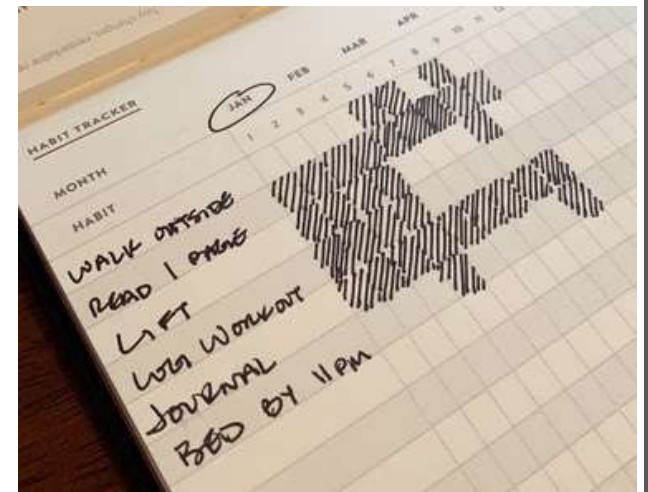 HABIT TRACKER
MONTH JAN FEB MAR APR
HABIT 1 2 3 4 5 6 7 8 9 10 11 12
WALK OUTSIDE
READ 1 PAGE
LIFT
LOG WORKOUT
JOURNAL
BED BY 11 PM